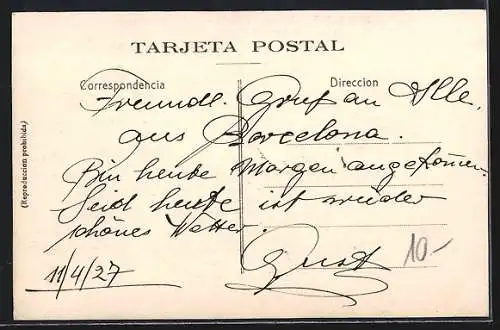 TARJETA POSTAL
Correspondencia
Direccion
Freundl. Gruß an Alle
aus Barcelona.
Bin heute Morgen angekommen.
Seid heute ist wieder
schönes Wetter.
Gust
11/4/27
10.-
(Reproduccion prohibida)